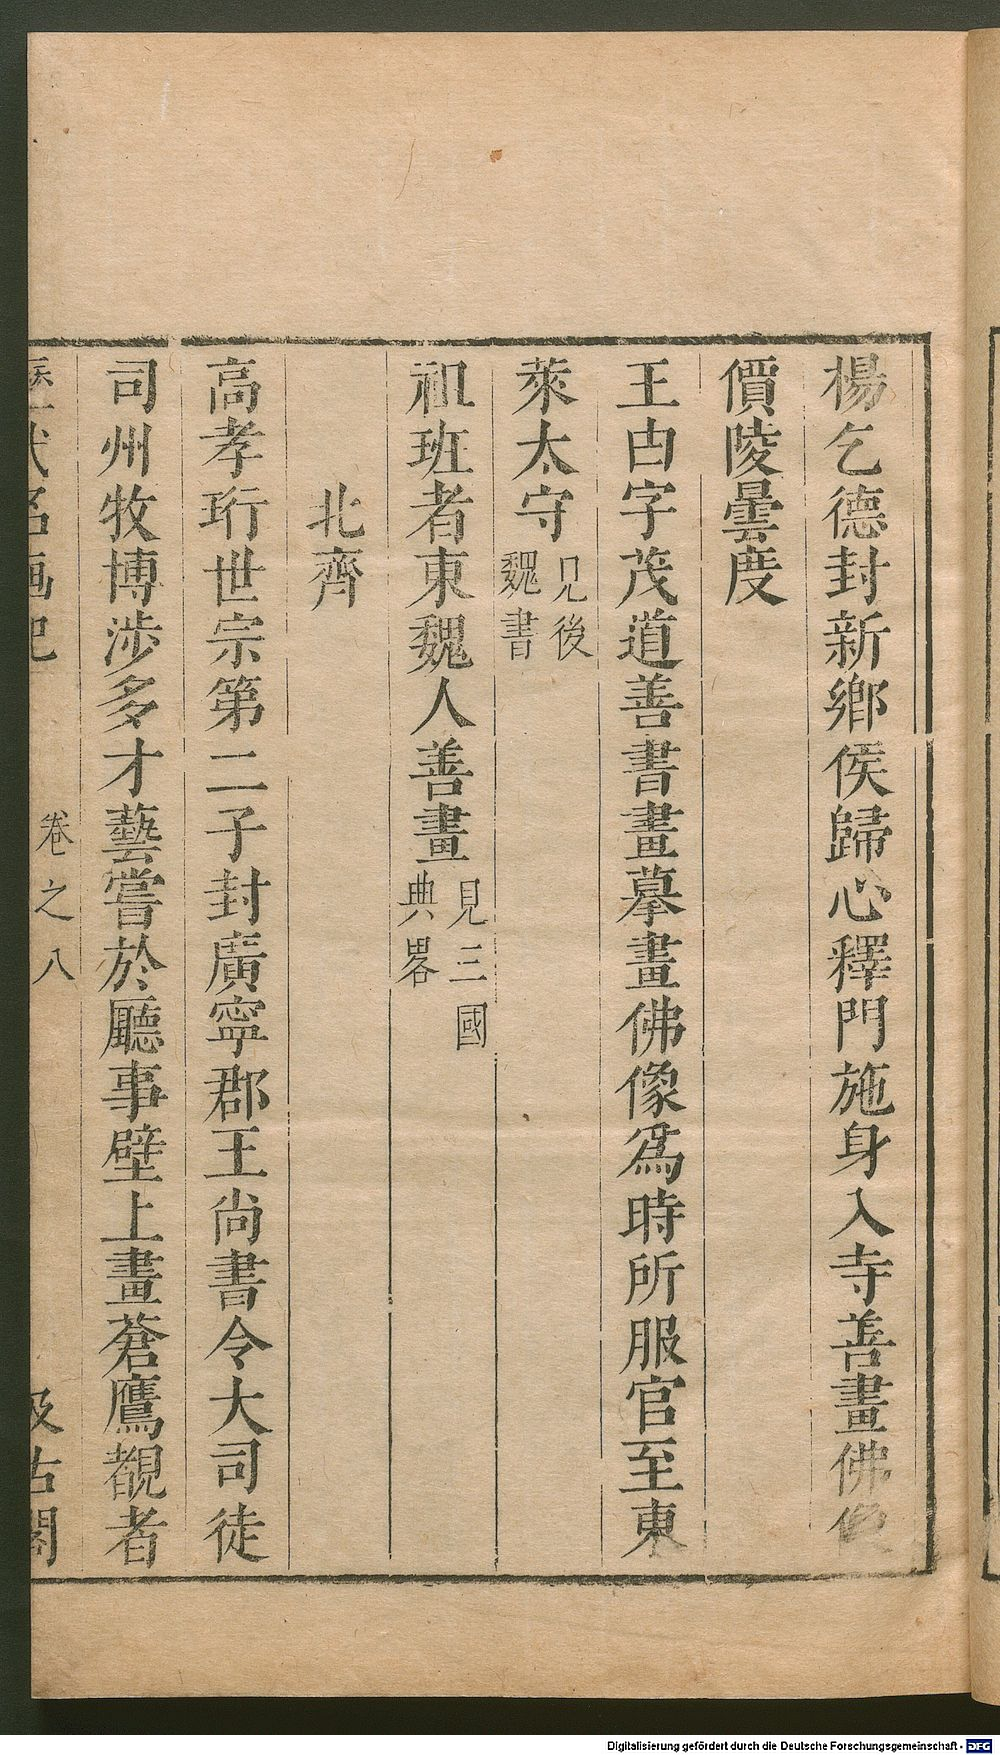 楊乞德封新鄉侯歸心釋門施身入寺善畫佛
價陵曇度
王由字茂道善書畫摹畫佛像爲時所服官至東
萊太守見後魏書
祖班者東魏人善畫見三國典畧
北齊
高孝珩世宗第二子封廣寧郡王尚書令大司徒
司州牧博涉多才藝嘗於廳事壁上畫蒼鷹覩者
卷之八
汲古閣
Digitalisierung gefördert durch die Deutsche Forschungsgemeinschaft - DFG